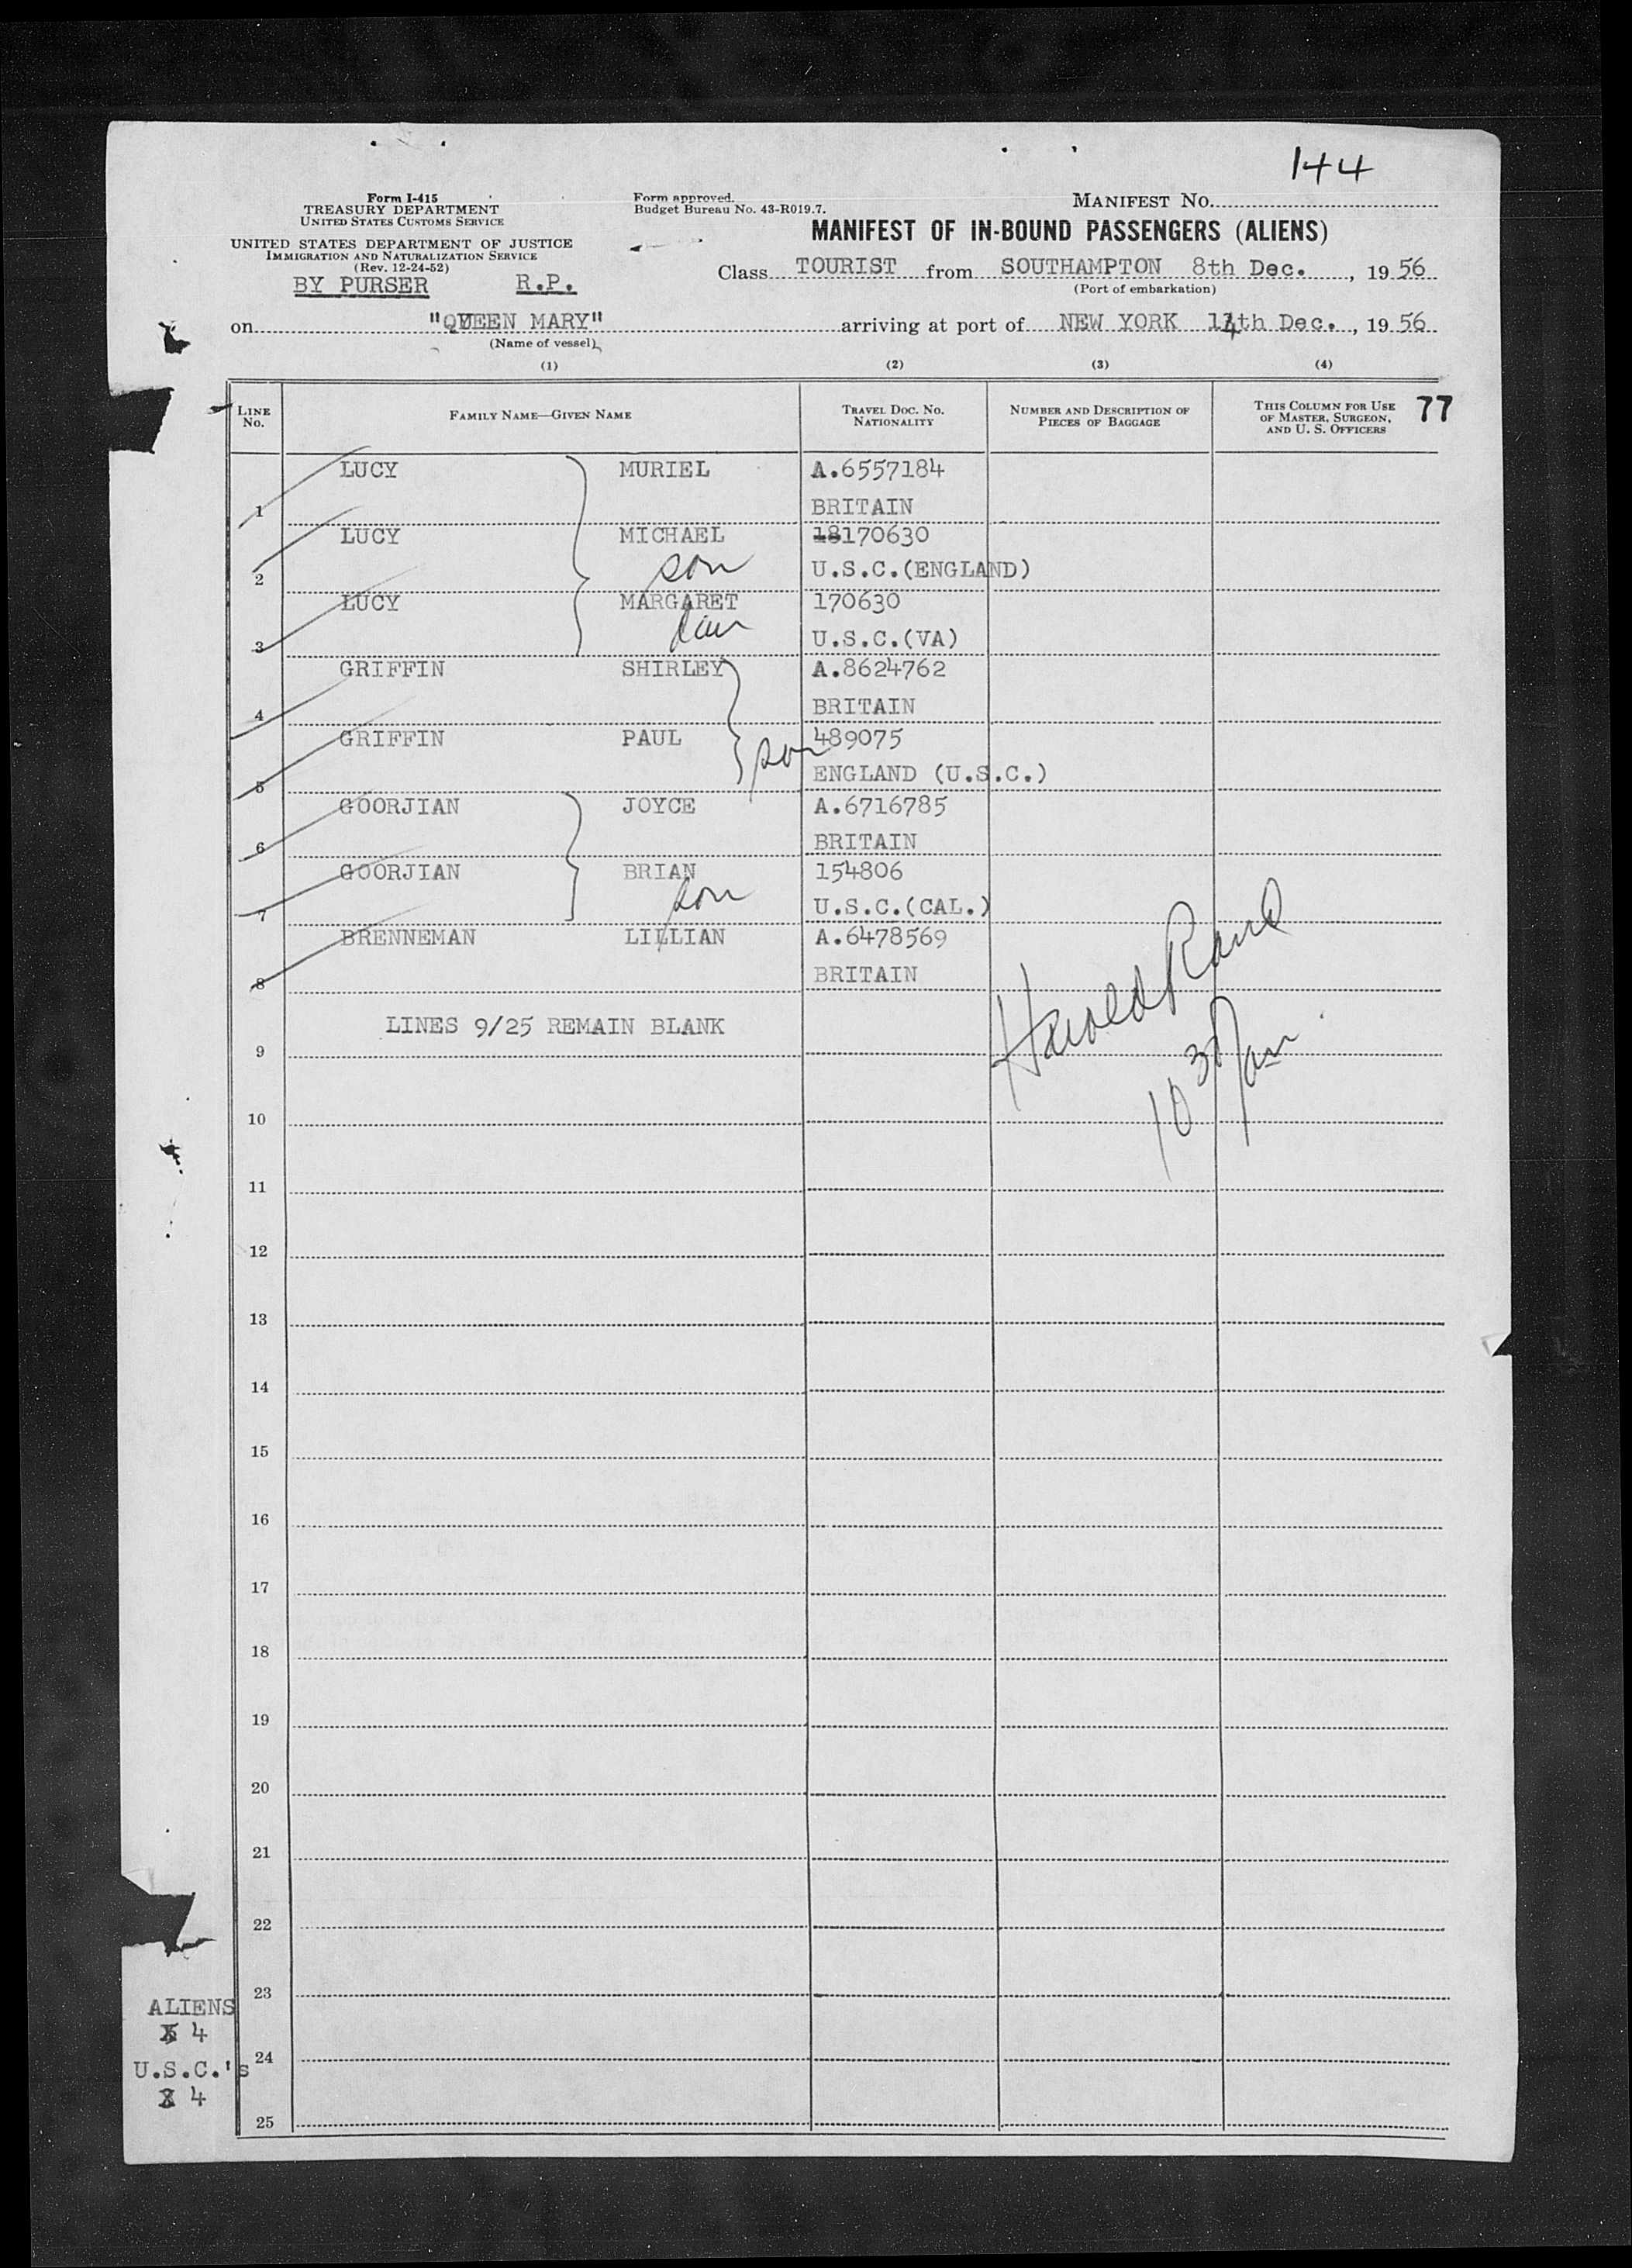 144
Form I-415
TREASURY DEPARTMENT
UNITED STATES CUSTOMS SERVICE
UNITED STATES DEPARTMENT OF JUSTICE
IMMIGRATION AND NATURALIZATION SERVICE
(Rev. 12-24-52)
BY PURSER R.P.
Form approved.
Budget Bureau No. 43-R019.7.
MANIFEST No.
MANIFEST OF IN-BOUND PASSENGERS (ALIENS)
Class TOURIST from SOUTHAMPTON 8th Dec., 1956
(Port of embarkation)
on "QUEEN MARY" arriving at port of NEW YORK 14th Dec., 1956
(Name of vessel)
(1) (2) (3) (4)
LINE No. FAMILY NAME—GIVEN NAME TRAVEL DOC. No. NATIONALITY NUMBER AND DESCRIPTION OF PIECES OF BAGGAGE THIS COLUMN FOR USE OF MASTER, SURGEON, AND U. S. OFFICERS 77
LUCY MURIEL A.6557184
1 BRITAIN
LUCY MICHAEL 18170630
2 son U.S.C.(ENGLAND)
LUCY MARGARET 170630
3 U.S.C.(VA)
GRIFFIN SHIRLEY A.8624762
4 BRITAIN
GRIFFIN PAUL son 489075
5 ENGLAND (U.S.C.)
GOORJIAN JOYCE A.6716785
6 BRITAIN
GOORJIAN BRIAN 154806
7 son U.S.C.(CAL.)
BRENNEMAN LILLIAN A.6478569
8 BRITAIN
Harold Rand
LINES 9/25 REMAIN BLANK
9
10 30 am
10
11
12
13
14
15
16
17
18
19
20
21
22
23
ALIENS
4
24
U.S.C.'s
4
25